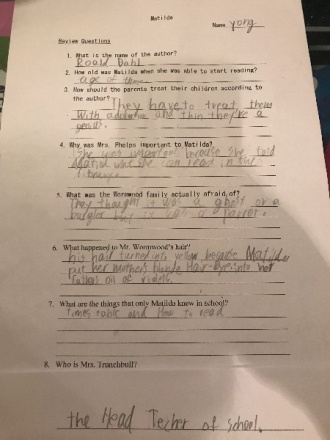 Matilda
Name yong
Review Questions
1. What is the name of the author?
Roald Dahl
2. How old was Matilda when she was able to start reading?
age of three
3. How should the parents treat their children according to
the author?
They have to treat them
With and thin they're a
genius.
4. Why was Mrs. Phelps important to Matilda?
She was important because she told
Matild what she can read in the
5. What was the Wormwood family actually afraid of?
They thought it was a ghost or a
burgler but it was a Parrot.
6. What happened to Mr. Wormwood's hair?
his hair turned into yellow because Matilda
put her mothers blonde Hair-Dye into her
fathers oil of violets.
7. What are the things that only Matilda knew in school?
times table and How to read
8. Who is Mrs. Trunchbull?
the Head Techer of school.